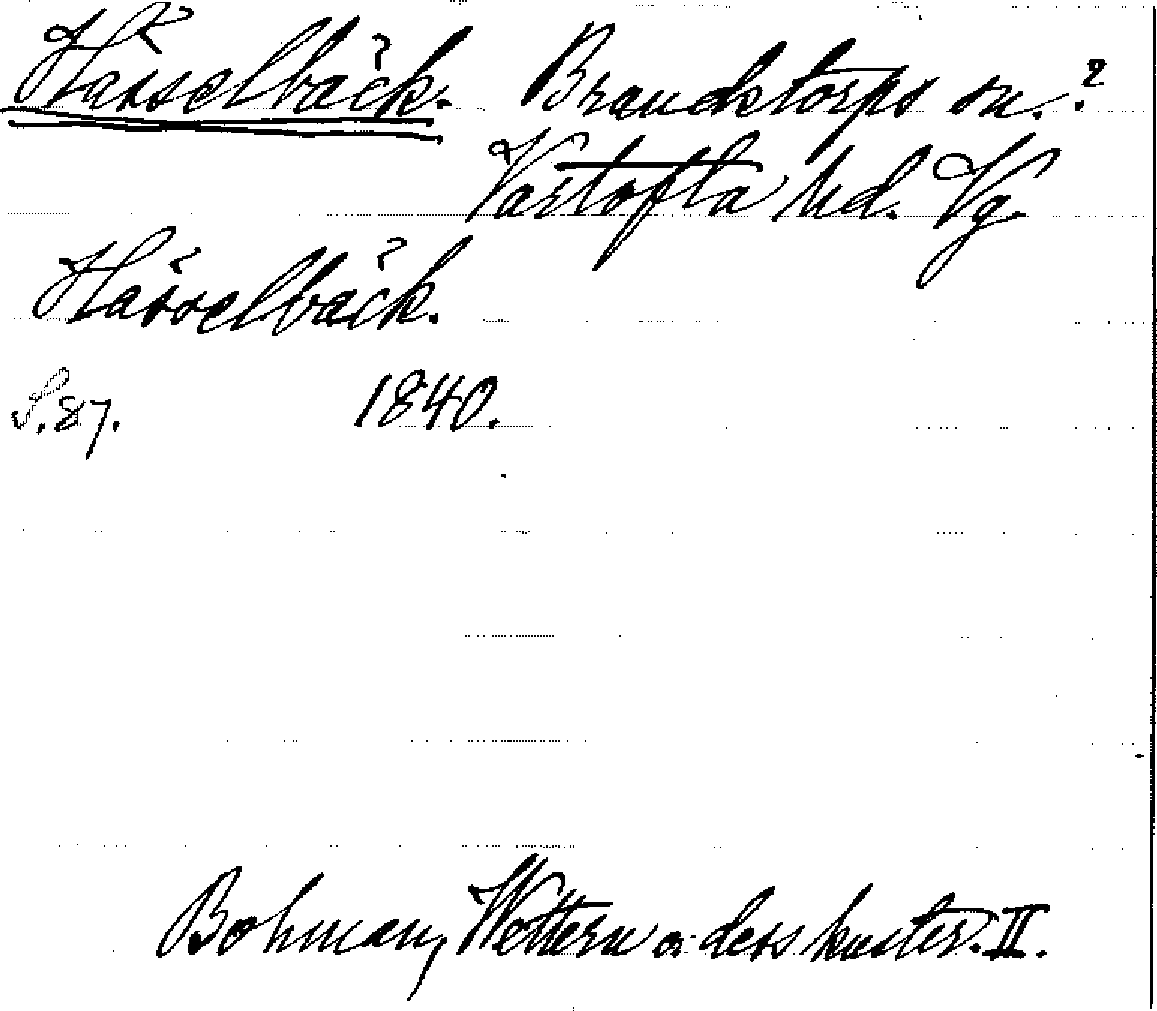 Hässelbäck. Brandstorps sn.?
Vartofta hd. Vg.
Hässelbäck.
S. 87. 1840.
Bohman, Wettern o. dess kuster. II.